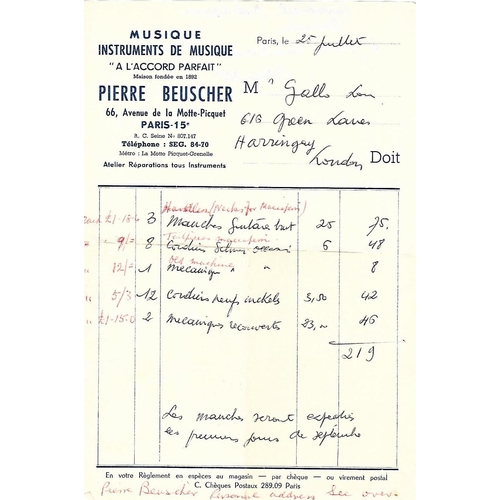 MUSIQUE
INSTRUMENTS DE MUSIQUE
"A L'ACCORD PARFAIT"
Maison fondée en 1892
PIERRE BEUSCHER
66, Avenue de la Motte-Picquet
PARIS-15e
R. C. Seine No 807.147
Téléphone : SEG. 84-70
Métro : La Motte Picquet-Grenelle
Atelier Réparations tous Instruments
Paris, le 25 juillet
Mr Gallo Lou
618 Green Lanes
Harringay
London Doit
£1-15-6 3 Manches guitare 25 75.
" 9/= 8 Cordiers 6 48
Old machines
" 12/= 1 mecanique " " 8
" 5/3 12 Cordiers neufs nickels 3,50 42
" £1-15-0 2 Mecaniques recouverts 23,00 46
219
Les manches seront expediés
les premiers jours de septembre
En votre Règlement en espèces au magasin — par chèque — ou virement postal
C. Chèques Postaux 289.09 Paris
Pierre Beuscher Personal address See over